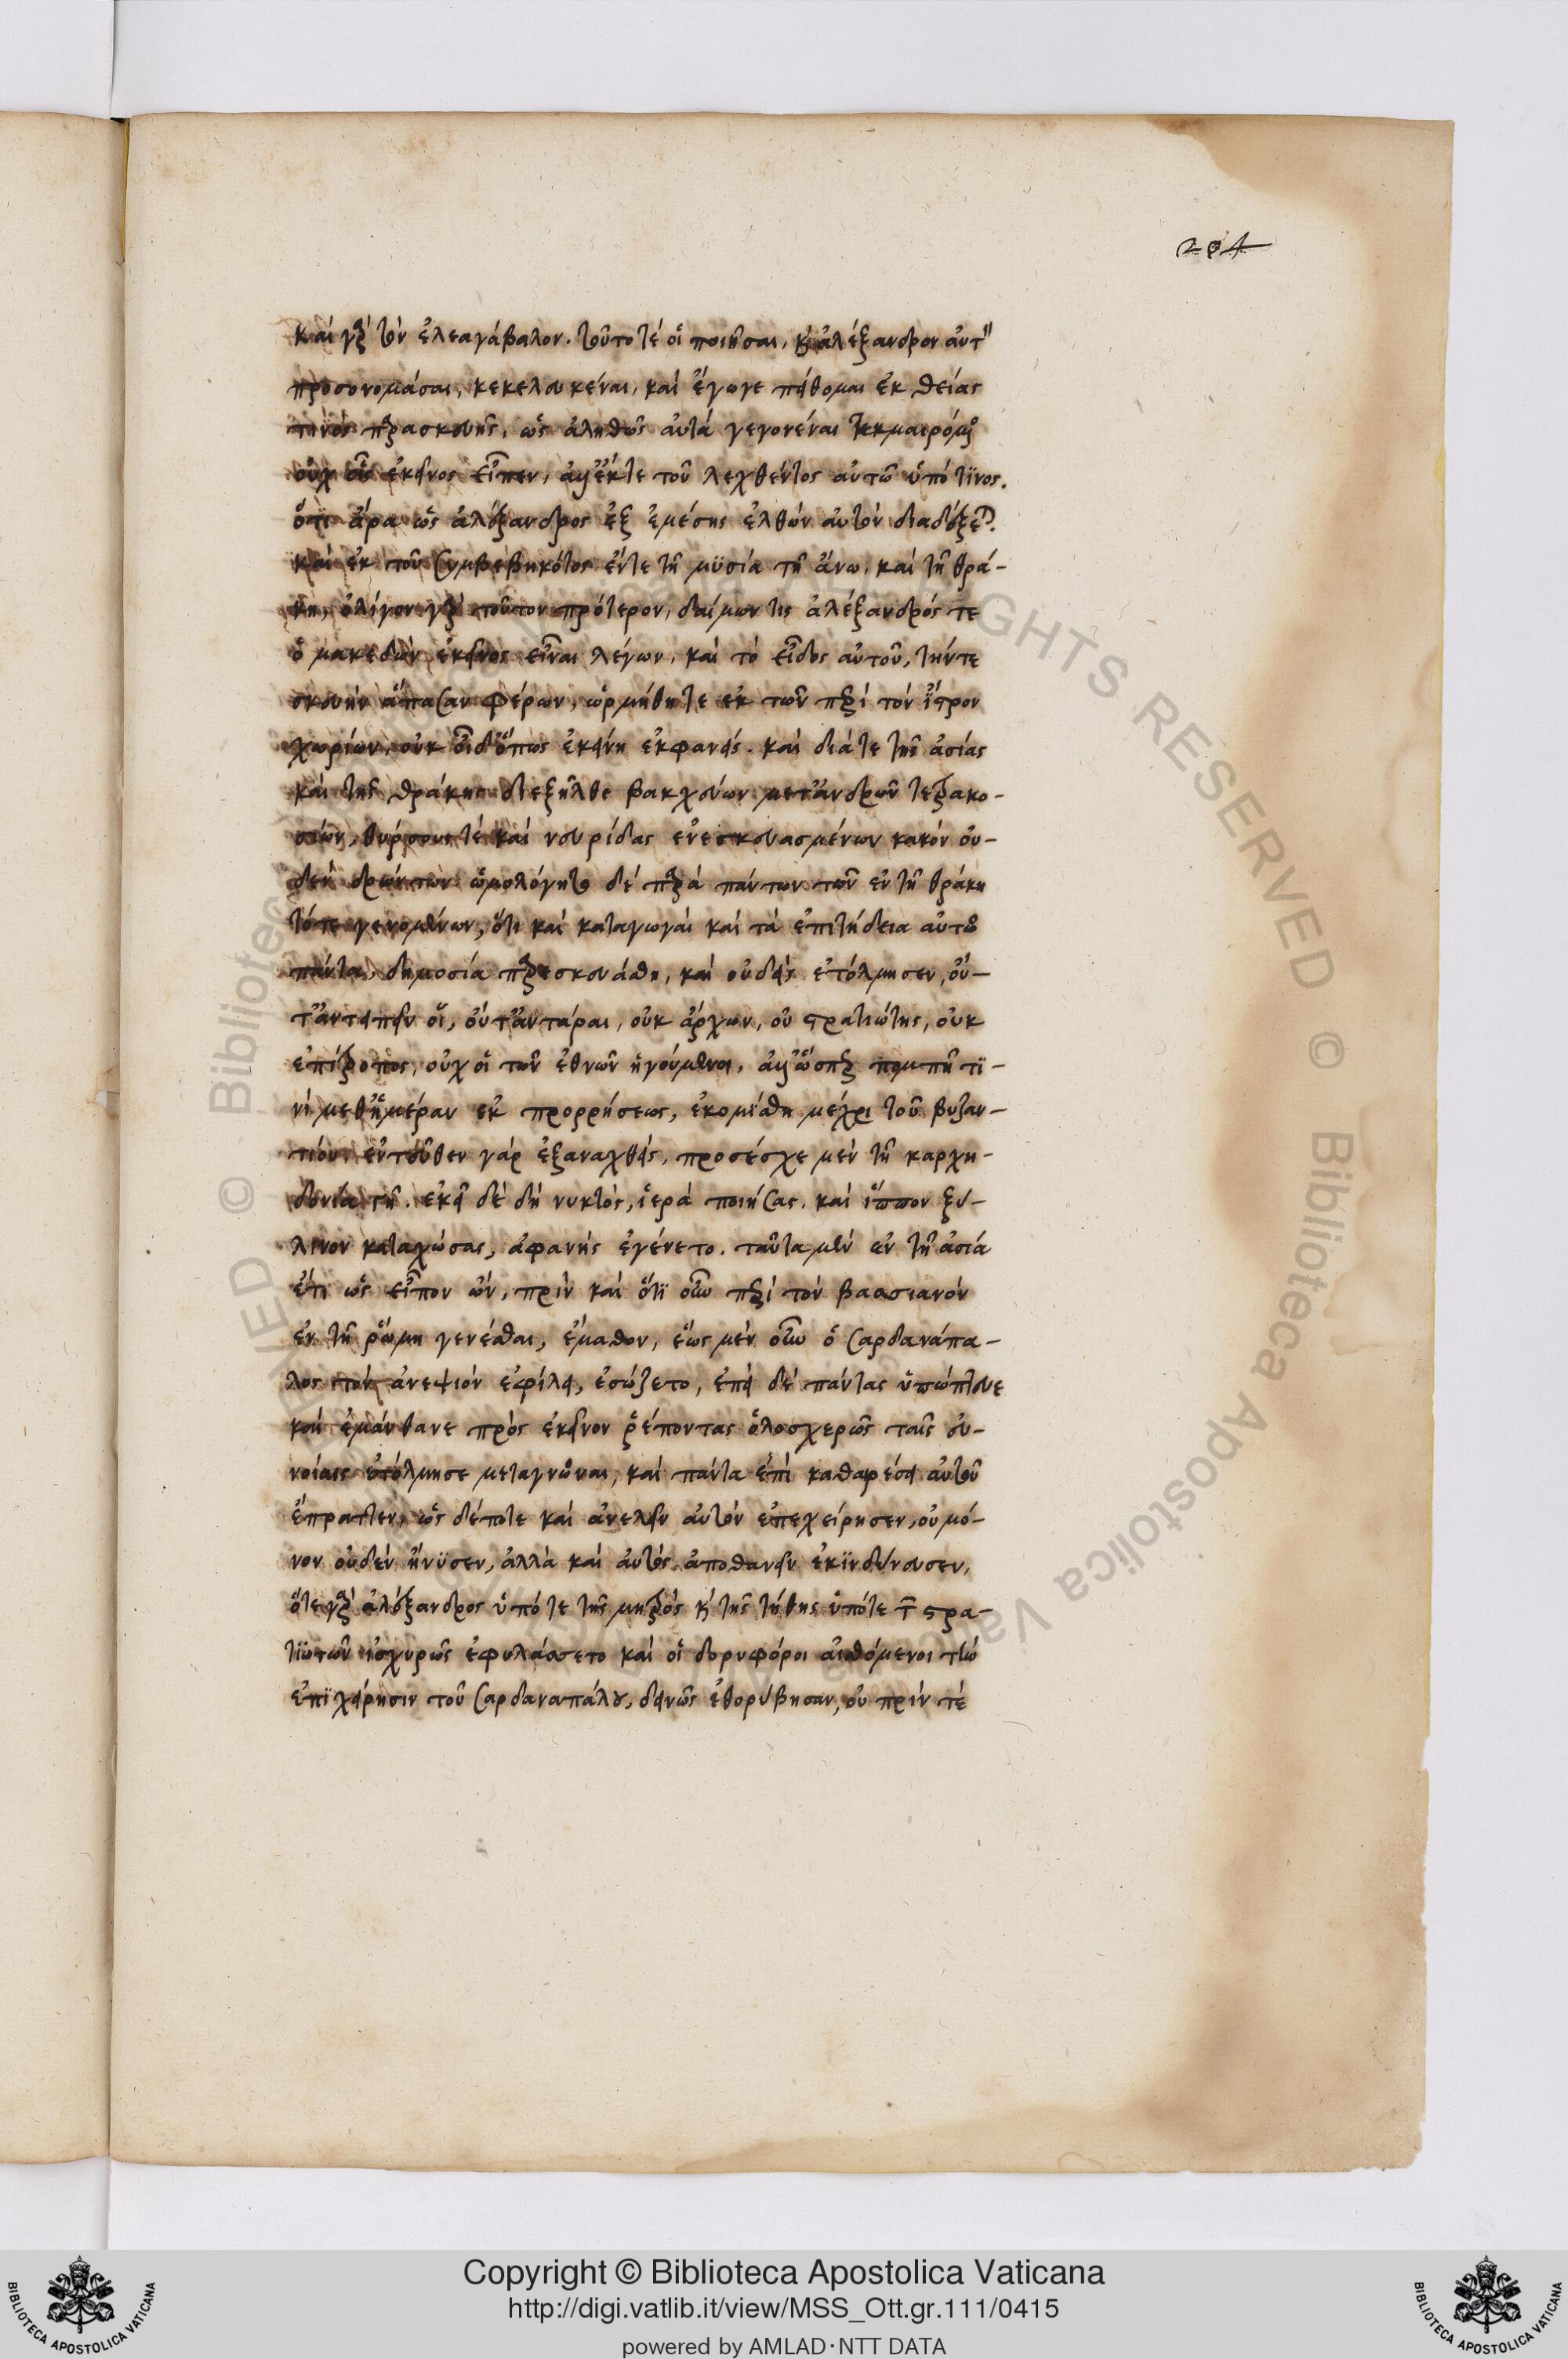 204
καί γὰρ τόν ἐλεαγάβαλον. τοῦτό τέ οἱ ποιῆσαι, κ̀ ἀλέξανδρον αὐτὸν
προσονομάσαι, κεκελευκέναι, καὶ ἔγωγε πείθομαι ἐκ θείας
τινός παρασκευῆς, ὡς ἀληθῶς αὐτά γεγονέναι τεκμαιρόμενος
οὐχ οἷς ἐκεῖνος εἶπεν, ἀλλ' ἔκτε τοῦ λεχθέντος αὐτῶ ὑπό τϊνος.
ὅτι ἄρα ὡς ἀλέξανδρος ἐξ ἐμέσης ἐλθών αὐτόν διαδέξεται.
καί ἐκ τοῦ συμβεβηκότος ἔντε τῆ μϋσία τῆ ἄνω, καί τῆ θρά-
κη, ὀλίγον γὰρ τοῦτον πρότερον, δαίμων τις ἀλέξανδρός τε
ὁ μακεδών ἐκεῖνος εἶναι λέγων, καί τό εἶδος αὐτοῦ, τήντε
σκευήν ἅπασαν φέρων, ὡρμήθητε ἐκ τῶν περί τόν ἴστρον
χωρίων, οὐκ οἶδ' ὅπως ἐκείνη ἐκφανείς. καί διάτε τῆς ἀσίας
καί τῆς θράκης διεξῆλθε βακχεύων μετ' ἀνδρῶν τετρακο-
σίων, θύρσους τέ καί νευρίδας ἐνεσκευασμένων κακόν οὐ-
δέν δρώντων ὡμολόγητο δέ παρά πάντων τῶν ἐν τῆ θράκη
τότε γενομένων, ὅτι καί καταγωγαί καί τά ἐπιτήδεια αὐτῶ
πάντα, δημοσία παρεσκευάσθη, καί οὐδείς ἐτόλμησεν, οὔ-
τ' ἀντειπεῖν οἵ, οὔτ' ἀντάραι, οὐκ ἄρχων, οὐ στρατιώτης, οὐκ
ἐπίτροπος, οὐχ οἱ τῶν ἐθνῶν ἡγούμενοι, ἀλλ' ὥσπερ πομπῆ τϊ-
νί μεθ' ἡμέραν ἐκ προρρήσεως, ἐκομίσθη μέχρι τοῦ βυζαν-
τίου ἐντεῦθεν γάρ ἐξαναχθείς, προσέσχε μέν τῆ καρχη-
δονία γῆ. ἐκεῖ δέ δή νυκτός, ἱερά ποιήσας, καί ἵππον ξύ-
λινον καταχώσας, ἀφανής ἐγένετο. ταῦτα μέν ἐν τῆ ἀσία
ἔτι ὡς εἶπον ὤν, πρίν καί ὅτϊ οὖν περί τόν βασσιανόν
ἐν τῆ ῥώμη γενέσθαι, ἔμαθον, ἕως μέν οὖν ὁ σαρδανάπα-
λος τόν ἀνεψιόν ἐφίλει, ἐσώζετο, ἐπεί δέ πάντας ὑπώπτευε
καί ἐμάνθανε πρός ἐκεῖνον ῥέποντας ὁλοσχερῶς ταῖς εὐ-
νοίαις ἐτόλμησε μεταγνῶναι, καί πάντα ἐπί καθαιρέσει αὐτοῦ
ἔπραττεν, ὡς δέποτε καί ἀνελεῖν αὐτόν ἐπεχείρησεν, οὐ μό-
νον οὐδέν ἤνϋσεν, ἀλλὰ καί αὐτός ἀποθανεῖν ἐκϊνδύνευσεν,
ὅτε γὰρ ἀλέξανδρος ὑπό τε τῆς μητρός κ̀ τῆς τήθης ὑπότε τῶν στρα-
τϊωτῶν ἰσχυρῶς ἐφυλάσσετο καί οἱ δορυφόροι αἰσθόμενοι τὴν
ἐπϊχείρησιν τοῦ σαρδαναπάλου, δεινῶς ἐθορύβησαν, οὐ πρίν τέ
Copyright © Biblioteca Apostolica Vaticana
http://digi.vatlib.it/view/MSS_Ott.gr.111/0415
powered by AMLAD·NTT DATA
BIBLIOTECA APOSTOLICA VATICANA
BIBLIOTECA APOSTOLICA VATICANA